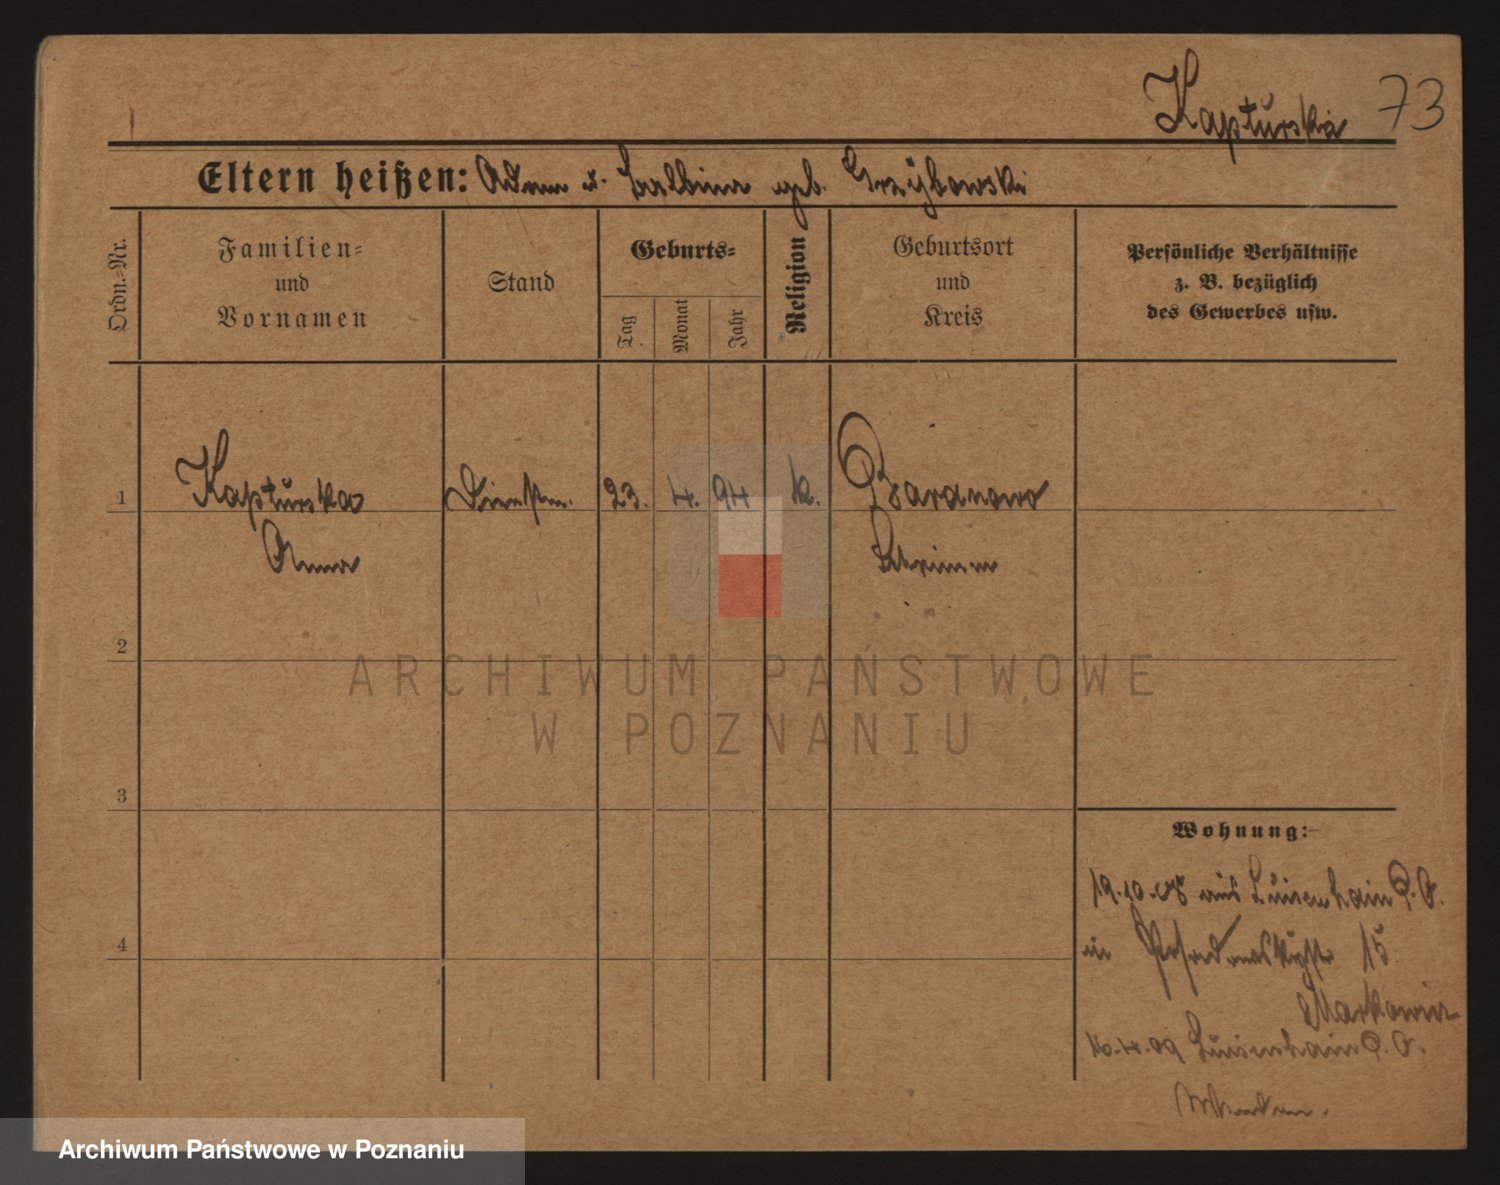 Kapturska 73
Eltern heißen: Adam u. Balbina geb. Grzybowski
Ordn.-Nr.
Familien-
und
Vornamen
Stand
Geburts-
Tag
Monat
Jahr
Religion
Geburtsort
und
Kreis
Persönliche Verhältnisse
z. B. bezüglich
des Gewerbes usw.
1 Kapturska Dienstm. 23. 4. 94 k. Baranowo
Anna Schrimm
2
ARCHIWUM PAŃSTWOWE
W POZNANIU
3
Wohnung:
19.10.08 aus Luisenhain P. O.
4
in 15
Markowicz
16.4.09 Luisenhain P. O.
Archiwum Państwowe w Poznaniu